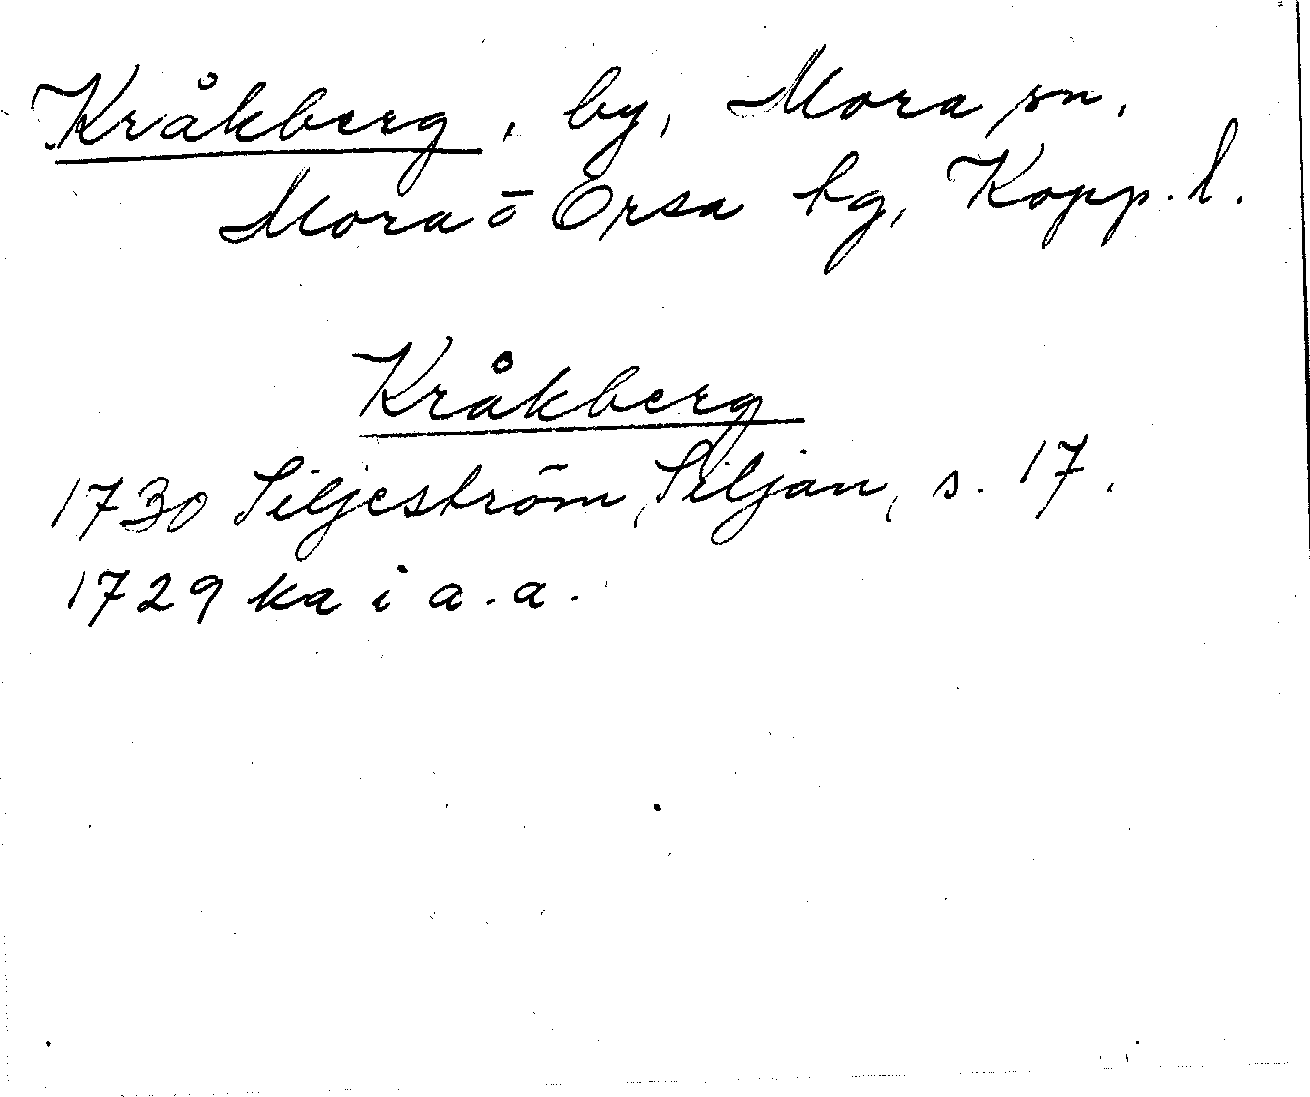 Kråkberg, by, Mora sn.
Mora o Orsa tg, Kopp. l.
Kråkberg
1730 Siljeström, Siljan, s. 17.
1729 ka i a. a.